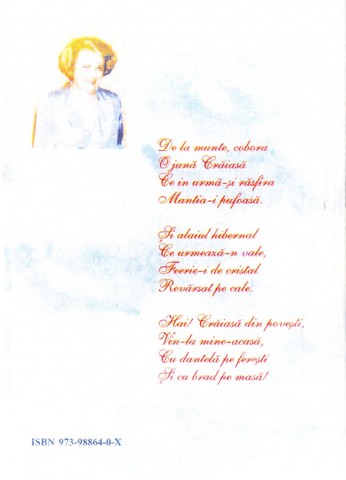 De la munte, cobora
O jună Crăiasă
Ce in urmă-și răsfira
Mantia-i pufoasă.
Și alaiul hibernal
Ce urmează-n vale,
Feerie-i de cristal
Revărsat pe cale.
Hai! Crăiasă din povești,
Vin-la mine-acasă,
Cu dantelă pe ferești
Și cu brad pe masă!
ISBN 973-98864-0-X